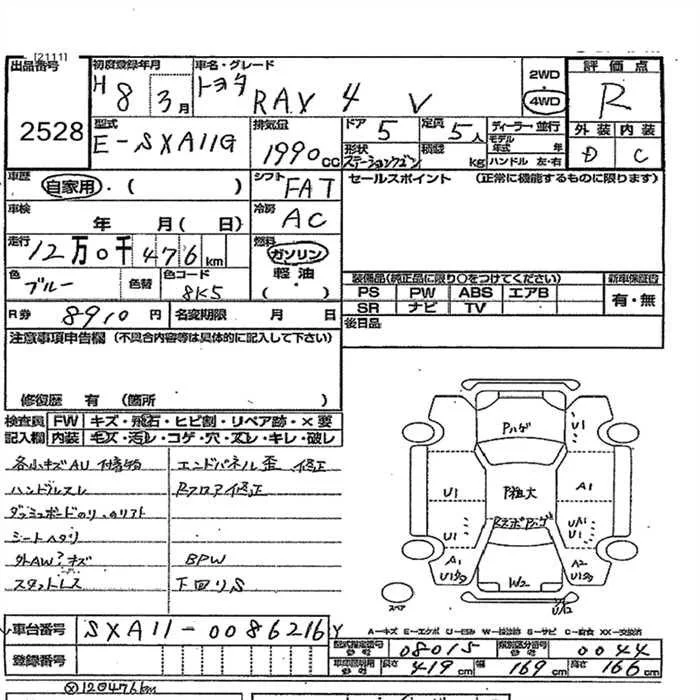 [2111]
出品番号
2528
初度登録年月
H 8 3月
車名・グレード
トヨタ RAV 4 V
2WD
4WD
評価点
R
外装 内装
D C
型式
E-SXA11G
排気量
1990cc
ドア 5
定員 5人
形状
ステーションワゴン
積載 kg
ディーラー・並行
モデル年式 年
ハンドル 左・右
車歴
自家用・( )
シフト
FAT
セールスポイント (正常に機能するものに限ります)
車検
年 月( 日)
冷房
AC
走行
12万0千476km
燃料
ガソリン
軽油
( )
色
ブルー
色替
色コード
8K5
装備品(純正品に限り○をつけてください)
新車保証書
PS PW ABS エアB
SR ナビ TV
有・無
R券 8910円
名変期限 月 日
後日品
注意事項申告欄 (不具合内容等は具体的に記入して下さい)
修復歴 有 (箇所 )
検査員記入欄
FW キズ・飛石・ヒビ割・リペア跡・×要
内装 キズ・汚レ・コゲ・穴・スレ・キレ・破レ
各小キズAU 付着物
エンドパネル歪 修正
ハンドルスレ
Rフロア修正
ダッシュボードのり、のりフト
シートヘタリ
外AW?キズ
BPW
スタットレス
下回りS
Pハゲ
U1
U1
P粗大
A1
U1
UA1
U1
A1
U1
A2
W2
U12
スペア
車台番号
SXA11-0086216 Y
A-キズ E-エクボ U-凹み W-補修跡 S-サビ C-腐食 XX-交換済
登録番号
型式指定番号 参考 08015
類別区分番号 参考 0044
車両説明用 参考 長さ 419cm 幅 169cm 高さ 166cm
120476km